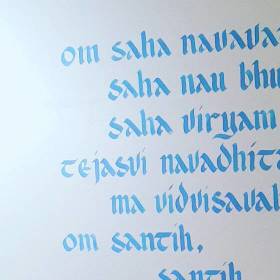 om saha navava
saha nau bhu
saha viryam
tejasvi navadhit
ma vidvisaval
om santih,
santih